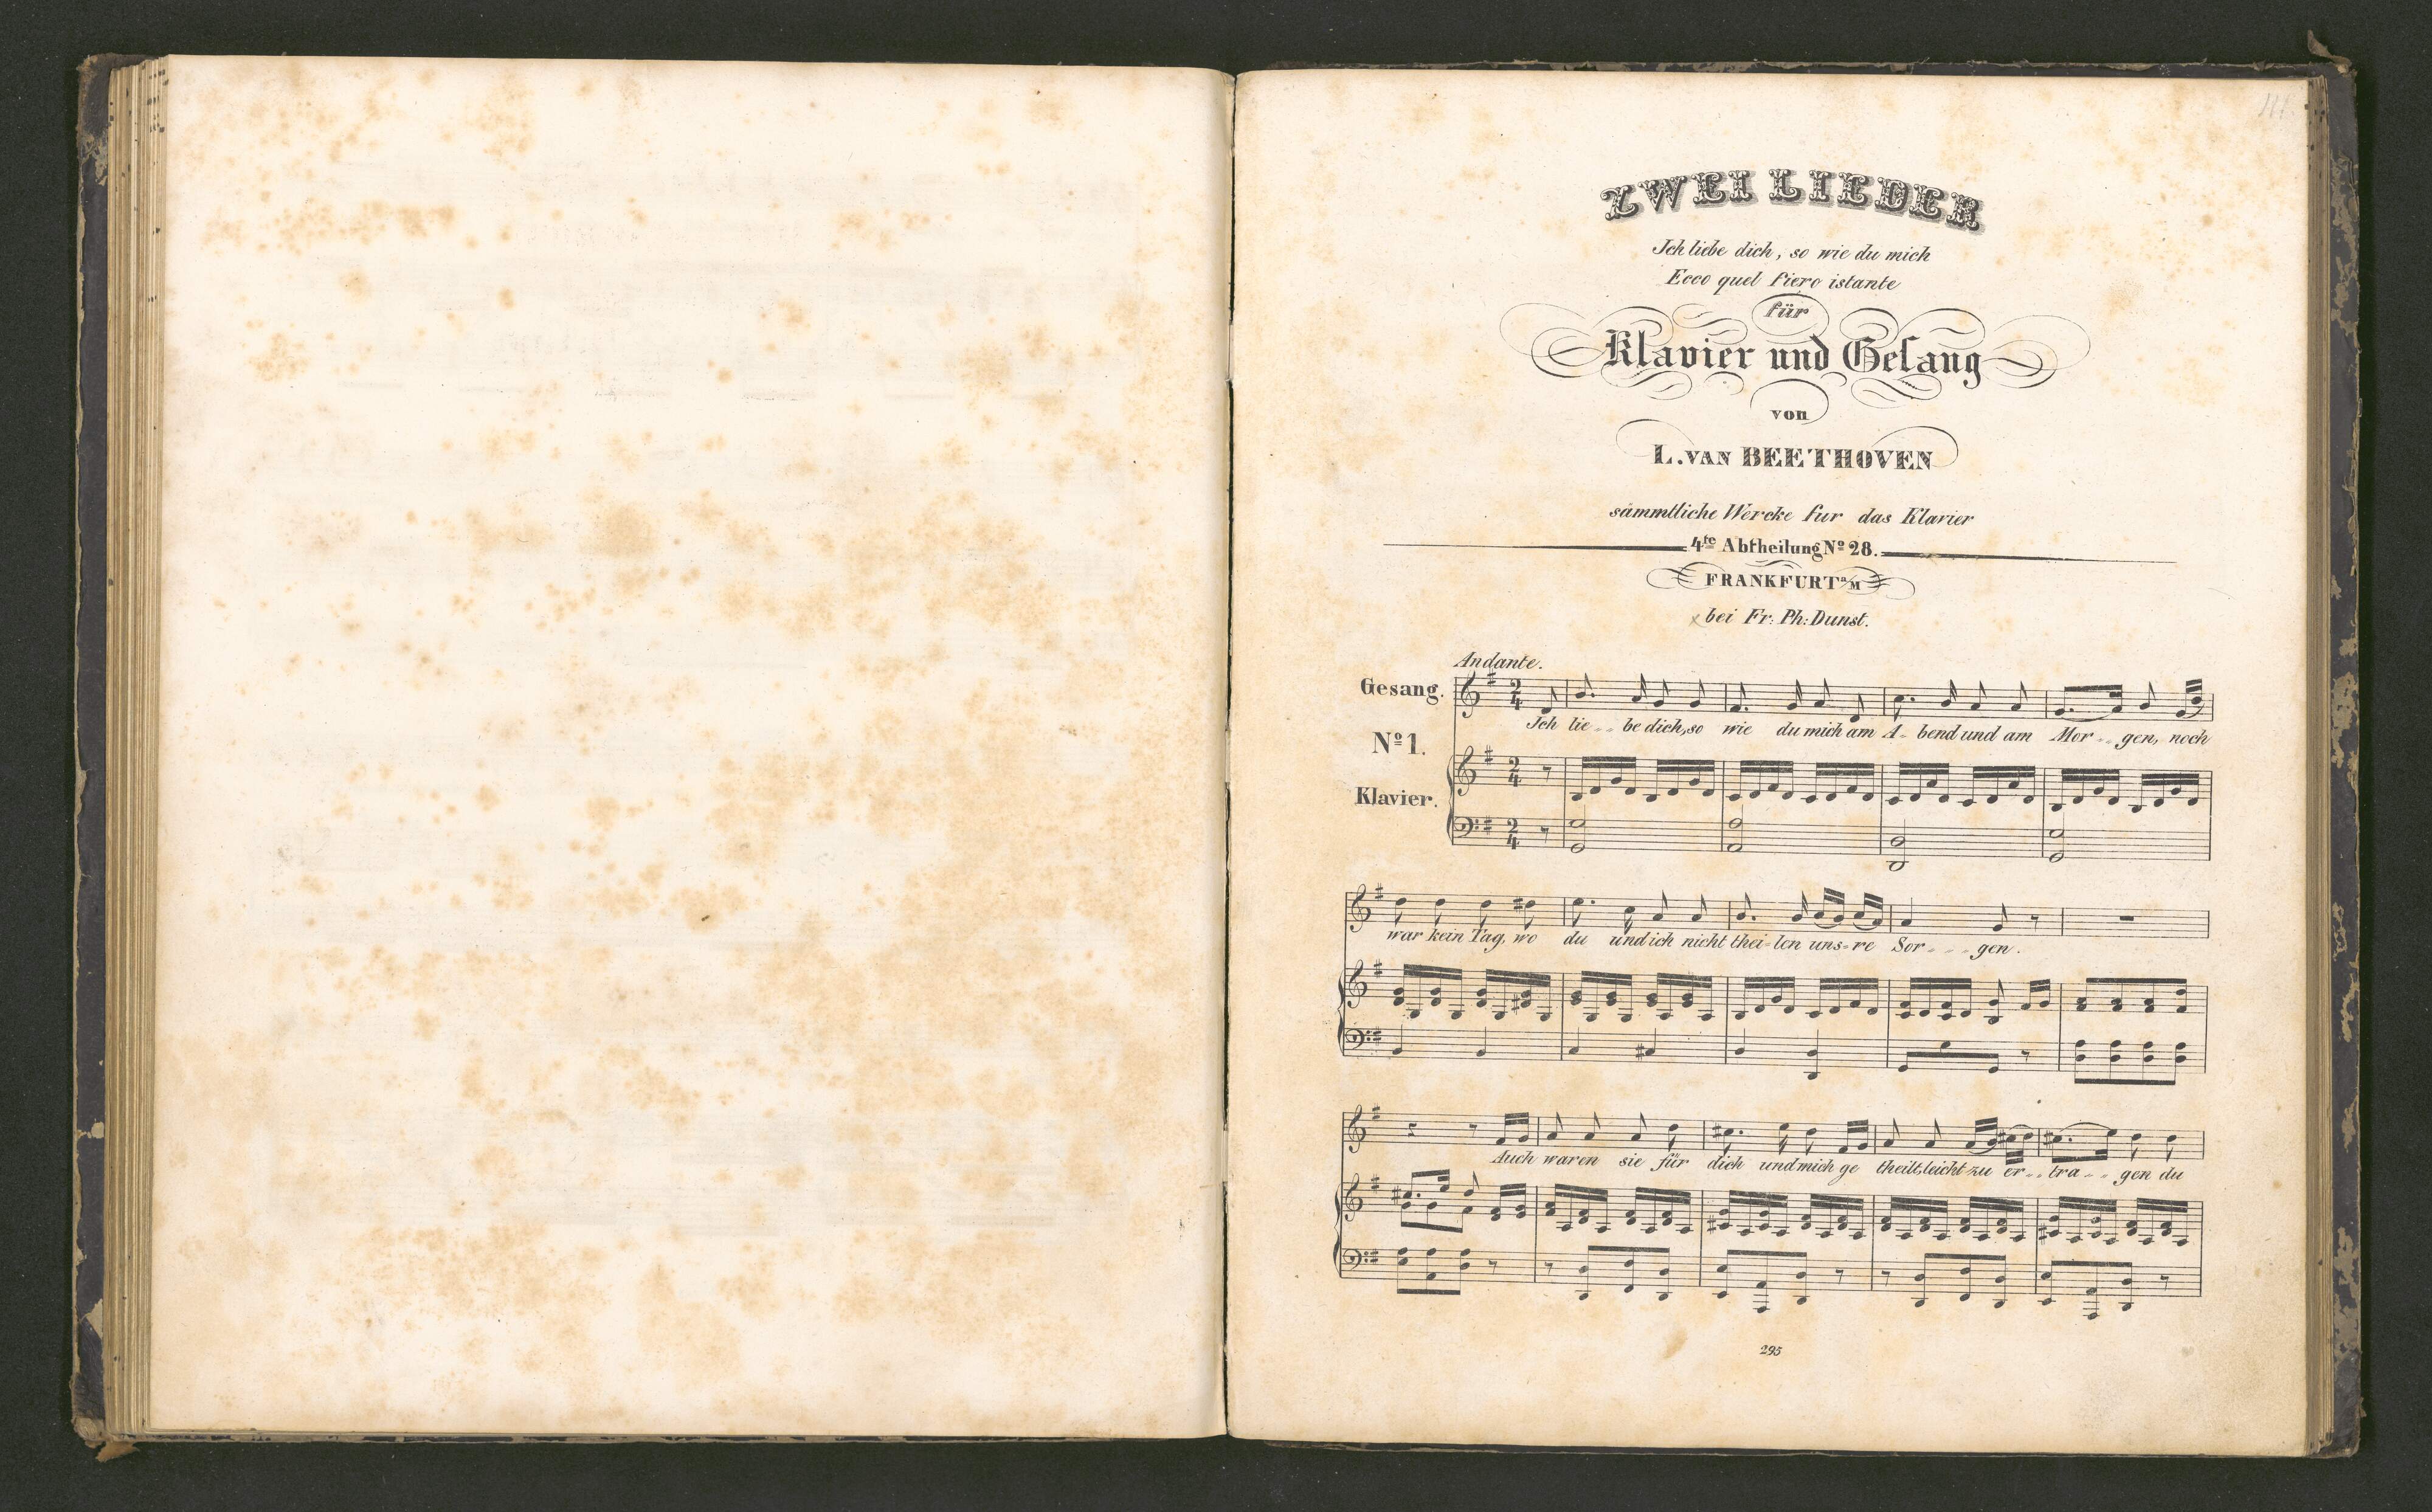 ZWEI LIEDER
Ich liebe dich, so wie du mich
Ecco quel fiero istante
für
Klavier und Gesang
von
L. VAN BEETHOVEN
sämmtliche Wercke fur das Klavier
4te Abtheilung No 28.
FRANKFURT a/M
bei Fr: Ph: Dunst.
Andante.
Gesang.
Ich lie - - be dich, so wie du mich am A - bend und am Mor - - gen, noch
No 1.
Klavier.
war kein Tag, wo du und ich nicht thei-len uns-re Sor - - - gen.
Auch waren sie für dich und mich ge theilt, leicht zu er - - tra - - gen du
295